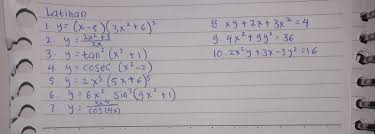 Latihan
1. y = (x-5)(3x²+6)²
2. y = 2x²+3 / 2x
3. y = tan² (x³+1)
4. y = cosec (x²-2)
5. y = 2x³ (5x+6)⁵
6. y = 6x² . sin³(4x²+1)
7. y = 3x⁴ / cos(4x)
8. xy + 2x + 3x² = 4
9. 4x² + 9y² = 36
10. 2x²y + 3x - 3y² = 16